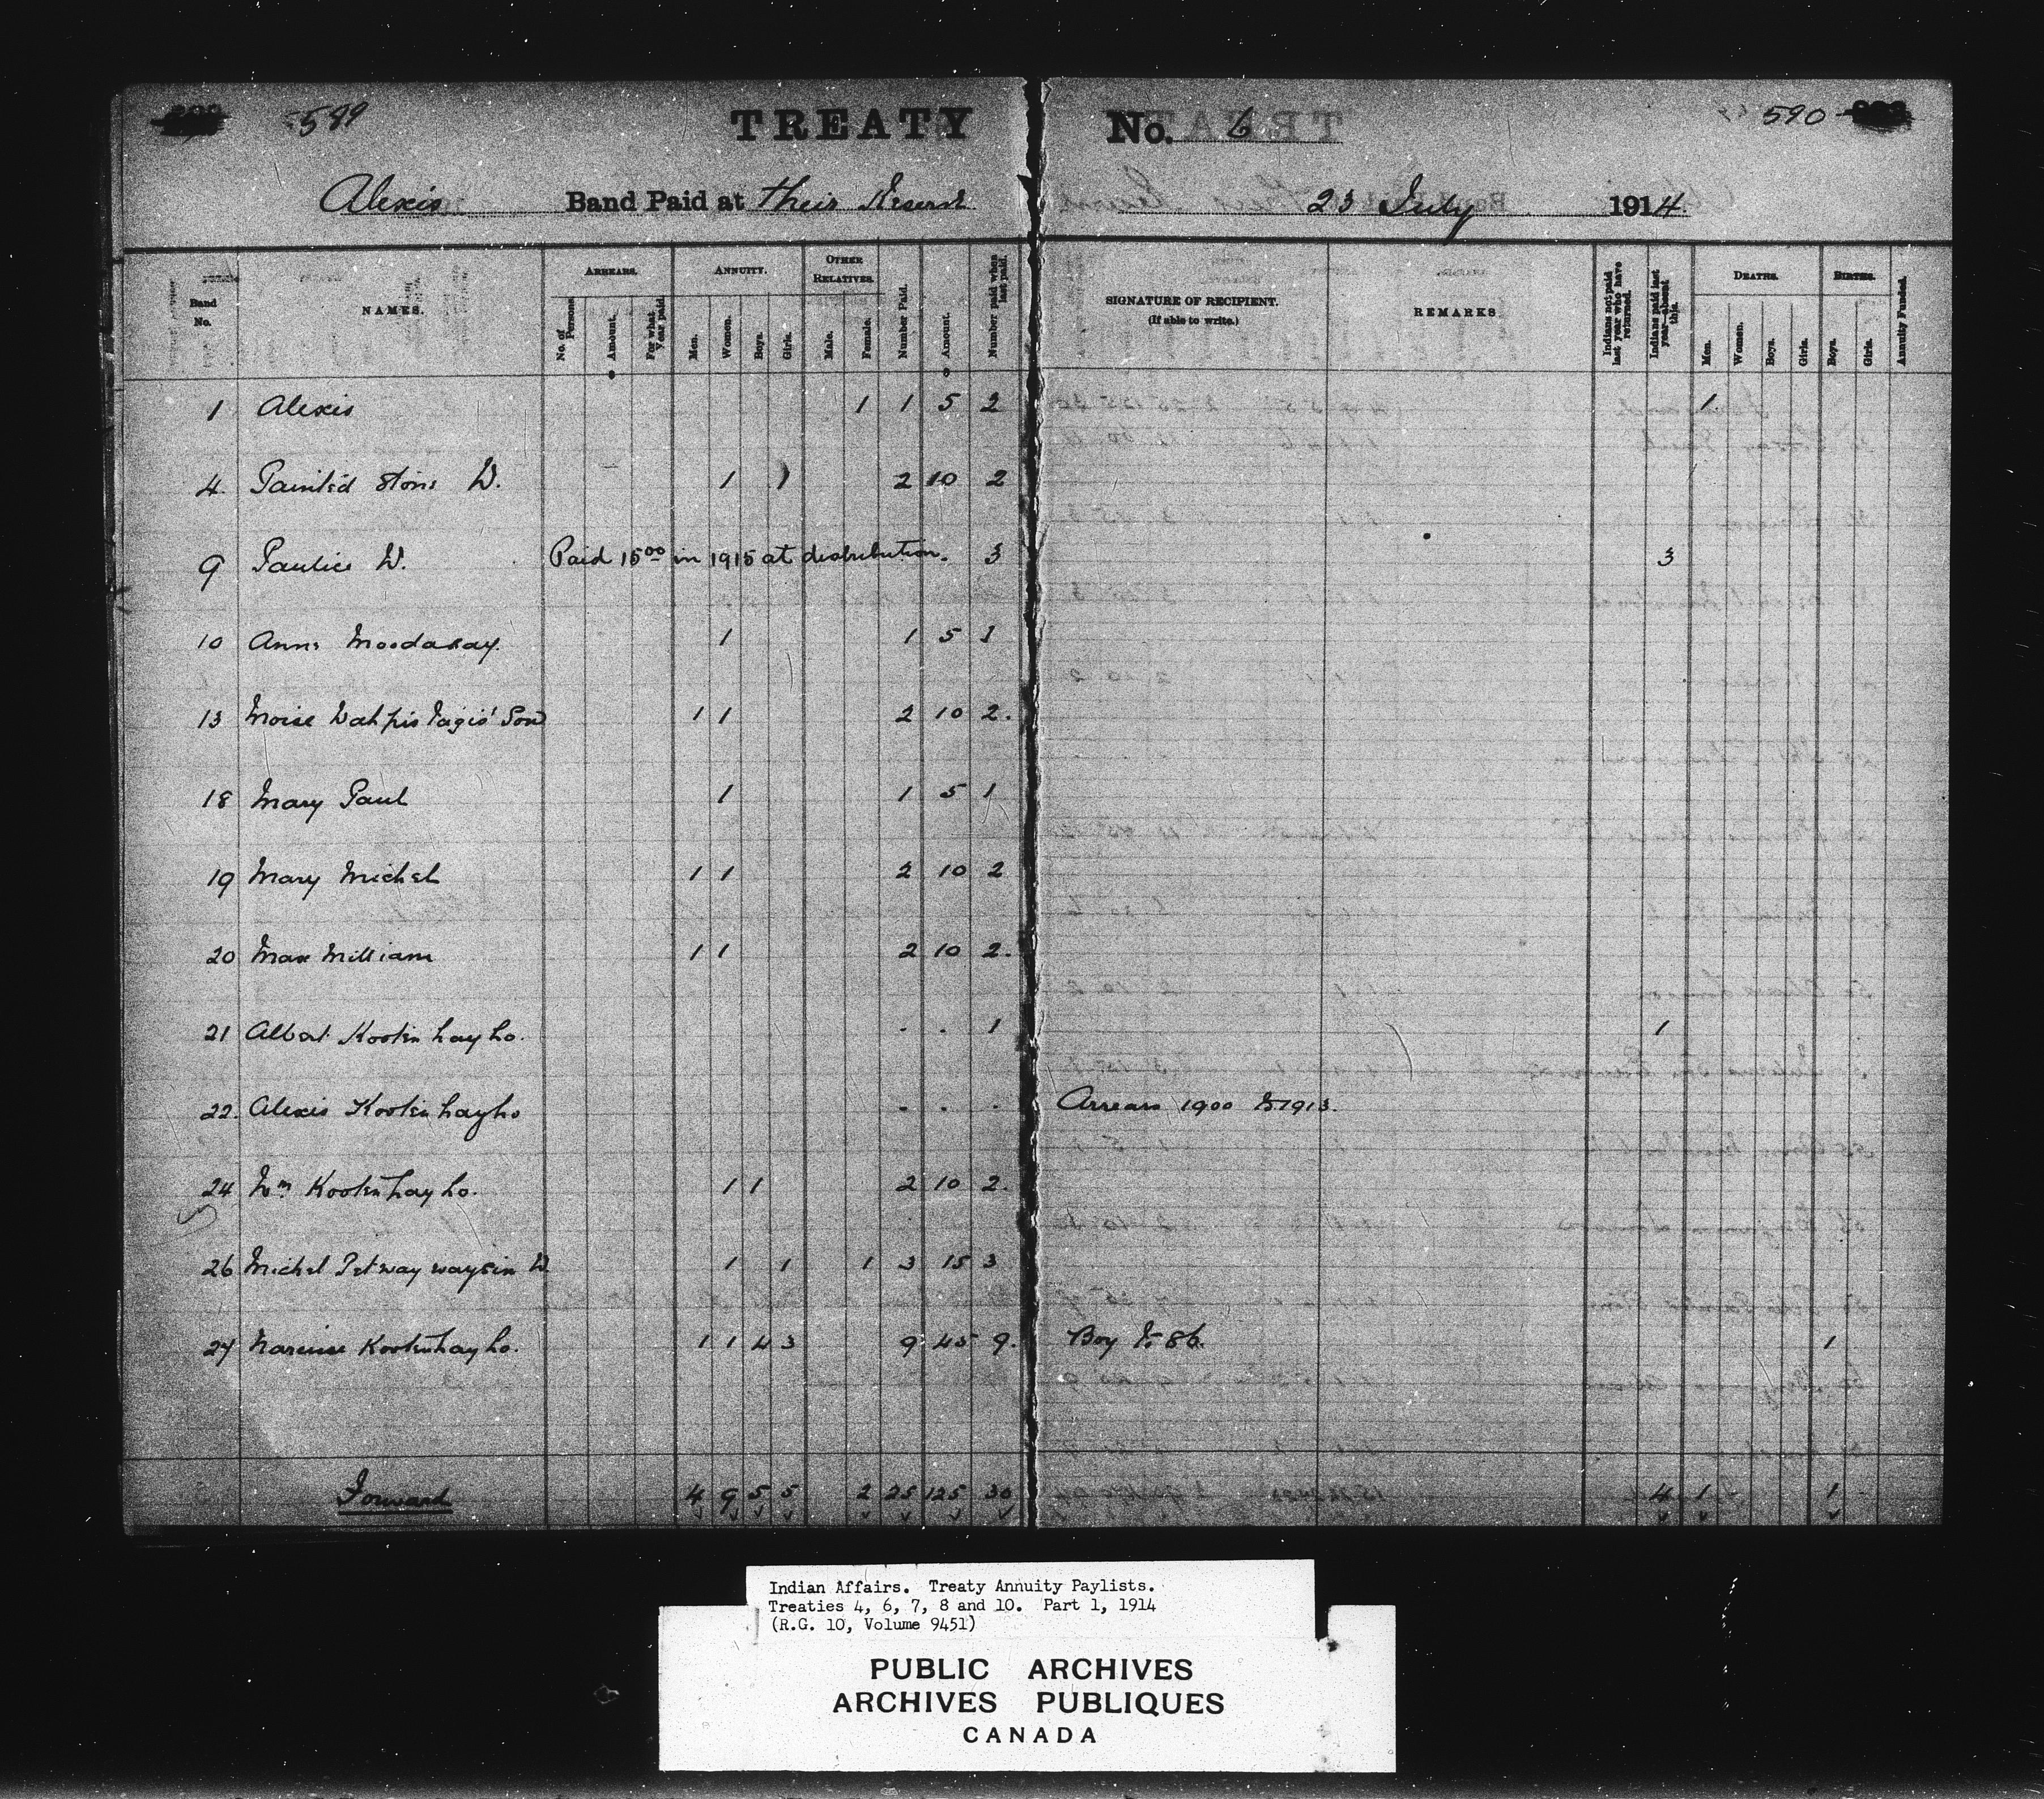 589 TREATY No. 6 590
Alexis Band Paid at their Reserve 23 July 1914.
Band No. NAMES. ARREARS. No. of Persons. Amount. For what Year paid. ANNUITY. Men. Women. Boys. Girls. OTHER RELATIVES. Male. Female. Number Paid. Amount. Number paid when last paid. SIGNATURE OF RECIPIENT. (If able to write.) REMARKS Indians not paid last year who have returned. Indians paid last year—absent this. DEATHS. Men. Women. Boys. Girls. BIRTHS. Boys. Girls. Annuity Funded.
1 Alexis 1 1 5 2 1
4. Painted Stone W. 1 1 2 10 2
9 Paulice W. Paid 15 00 in 1915 at distribution. 3 3
10 Anne Moodasay. 1 1 5 1
13 Moise Wahpistagis' Son 1 1 2 10 2.
18 Mary Paul 1 1 5 1
19 Mary Michel 1 1 2 10 2
20 Max William 1 1 2 10 2.
21 Albert Kootenhayho. . . 1 1
22. Alexis Kootenhayho . . . Arrears 1900 to 1913.
24 Wm Kootenhayho. 1 1 2 10 2.
26 Michel Petwaywaysin W 1 1 1 3 15 3
27 Narcisse Kootenhayho. 1 1 4 3 9 45 9. Boy to 86. 1
Forward 4 9 5 5 2 25 125 30 4 1 1
Indian Affairs. Treaty Annuity Paylists.
Treaties 4, 6, 7, 8 and 10. Part 1, 1914
(R.G. 10, Volume 9451)
PUBLIC ARCHIVES
ARCHIVES PUBLIQUES
CANADA